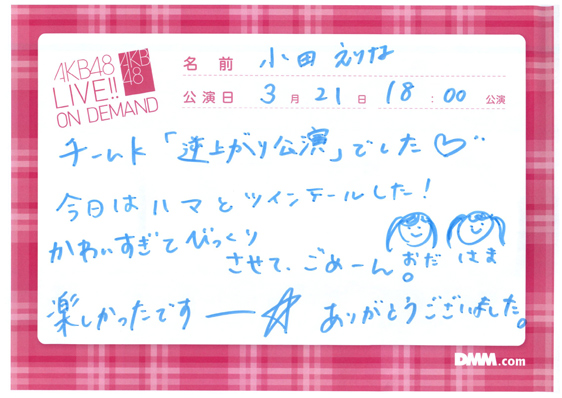 AKB48
LIVE!!
ON DEMAND
AKB
48
名前 小田えりな
公演日 3月21日 18:00 公演
チームK「逆上がり公演」でした♡
今日はハマとツインテールした!
かわいすぎてびっくり
させて、ごめーん。
おだ はま
楽しかったです──☆ ありがとうございました。
DMM.com